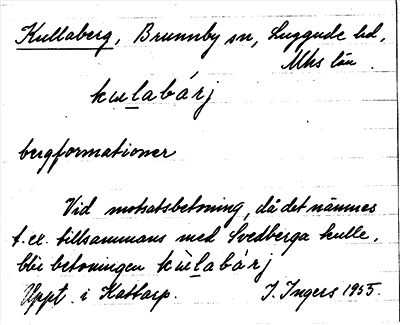 Kullaberg, Brunnby sn, Luggude hd,
Mhs län
kulabárj
bergformationer
Vid motsatsbetoning, då det nämnes
t.ex. tillsammans med Svedberga kulle,
blir betoningen kùlabárj
Uppt. i Kattarp. I. Ingers 1955.